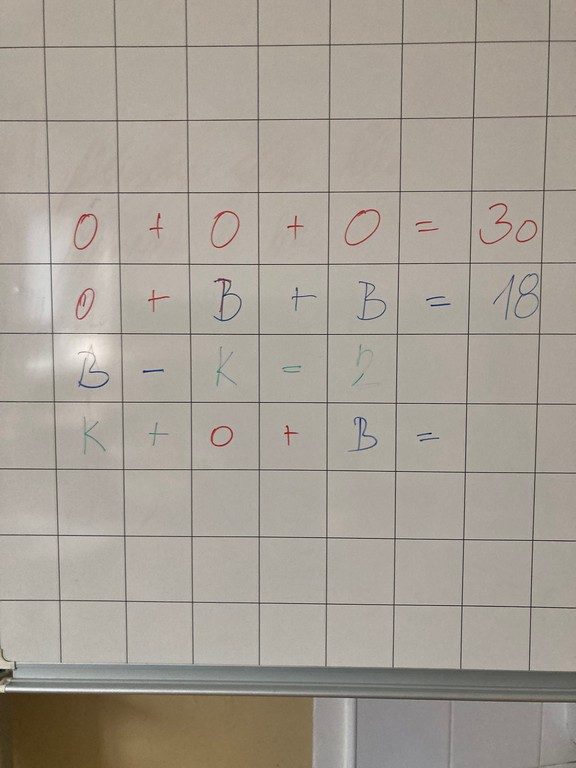 O + O + O = 30
O + B + B = 18
B - K = 2
K + O + B =